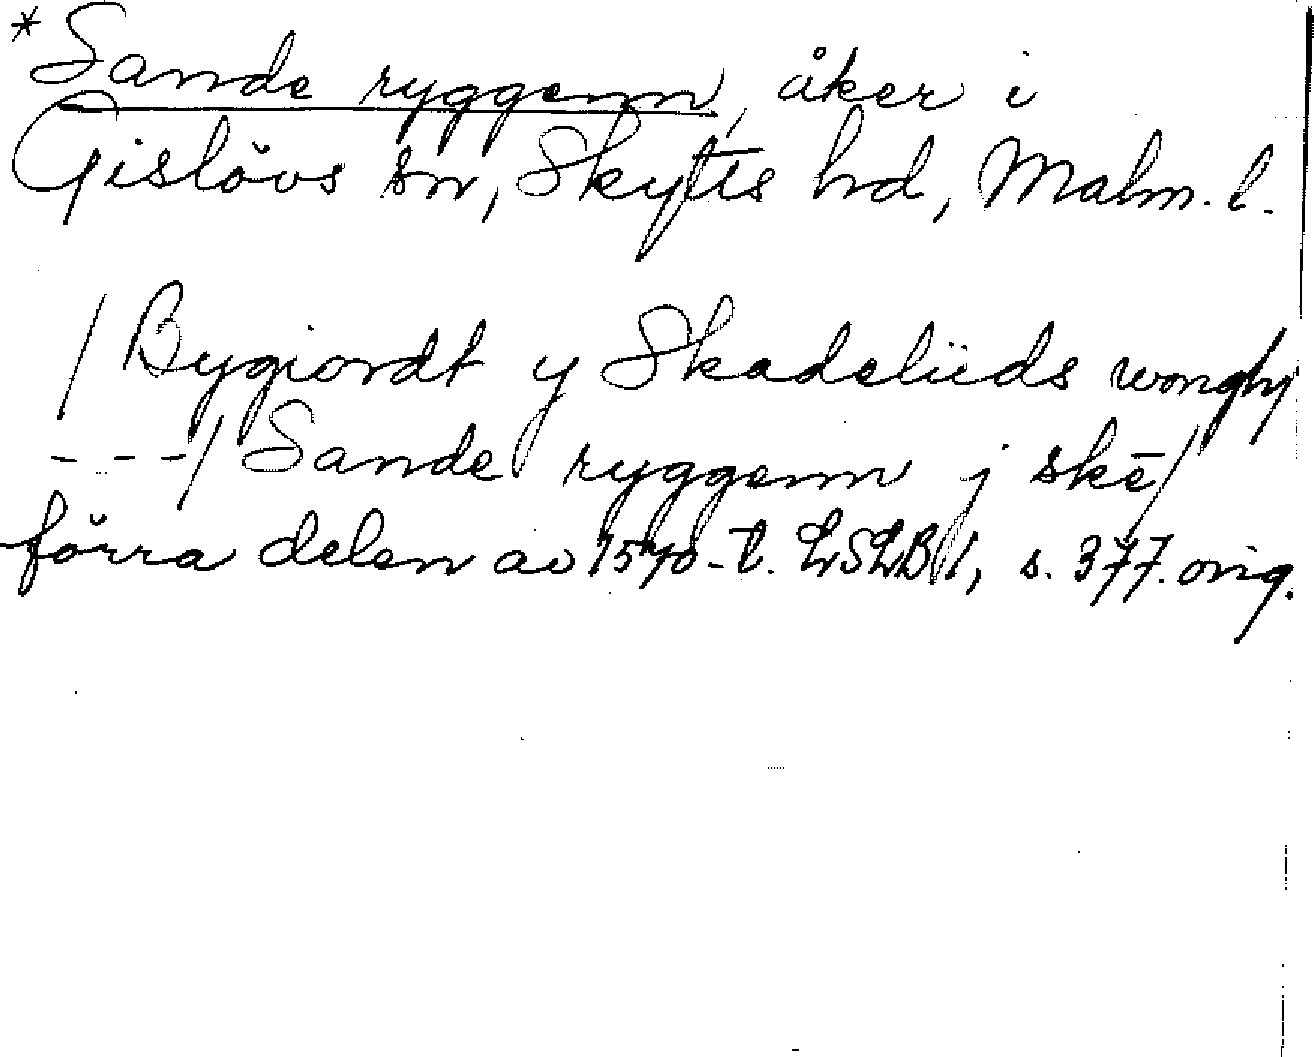 *Sande ryggenn, åker i
Gislövs sn, Skytts hd, Malm. l.
/Bygiordt y Skadelüds
- - -/ Sande ryggenn j skē/
förra delen av 1570-t. LSLB 1, s. 377. orig.